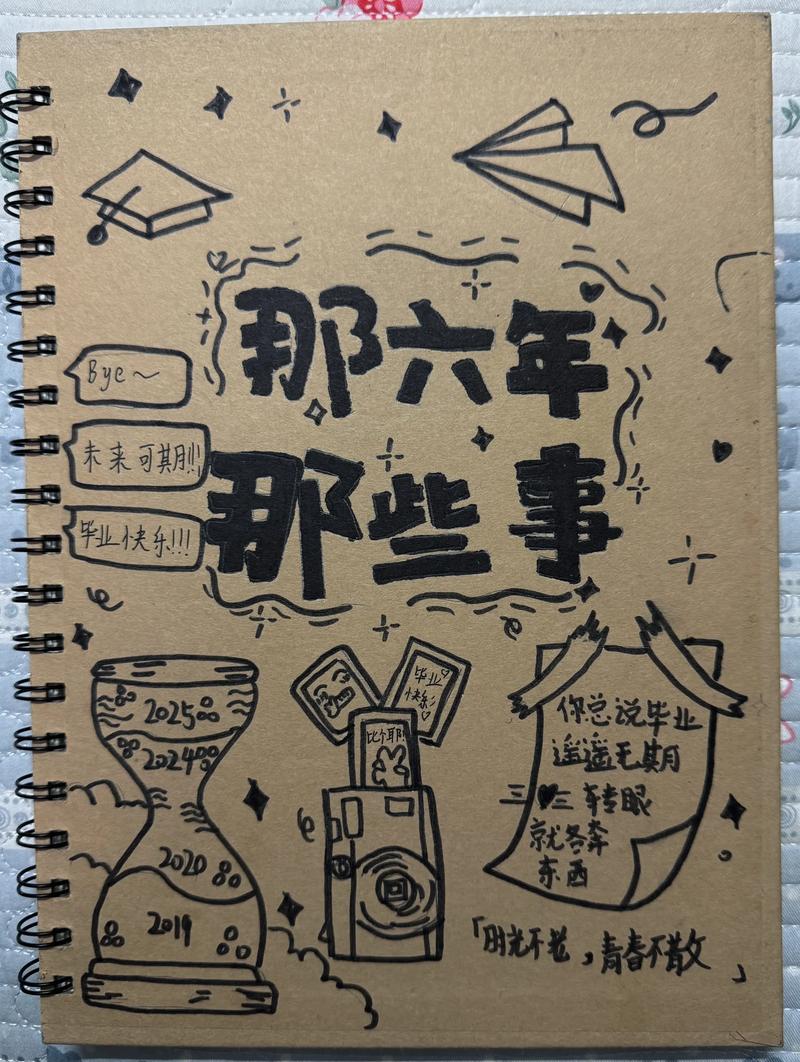 那六年
那些事
Bye~
未来可期!!
毕业快乐!!!
2025
2024
2020
2019
毕业
快乐
比个耶!
你总说毕业
遥遥无期
转眼
就各奔
东西
「时光不老,青春不散」